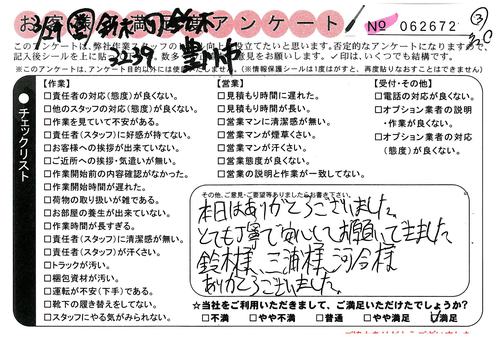 お客様満足度アンケート
№ 062672
③
このアンケートは、弊社作業スタッフの
に役立てたいと思います。否定的なアンケートになりますので、
記入後シールを上に貼って
ご意見をお願いします。✓印は、いくつでも結構です。
※このアンケートは、アンケート目的以外には使用いたしません。(※情報保護シールは1度はがすと、再度貼りなおすことはできません)
3/29
鈴木
3239
豊川市
チェックリスト
【作業】
□責任者の対応(態度)が良くない。
□他のスタッフの対応(態度)が良くない。
□作業を見ていて不安がある。
□責任者(スタッフ)に好感が持てない。
□お客様への挨拶が出来ていない。
□ご近所への挨拶・気遣いが無い。
□作業開始前の内容確認がなかった。
□作業開始時間が遅れた。
□荷物の取り扱いが雑である。
□お部屋の養生が出来ていない。
□作業時間が長すぎる。
□責任者(スタッフ)に清潔感が無い。
□責任者(スタッフ)が汗くさい。
□トラックが汚い。
□梱包資材が汚い。
□運転が不安(下手)である。
□靴下の履き替えをしてない。
□スタッフにやる気がみられない。
【営業】
□見積もり時間に遅れた。
□見積もり時間が長い。
□営業マンに清潔感が無い。
□営業マンが煙草くさい。
□営業マンが汗くさい。
□営業態度が良くない。
□営業の説明と作業が一致してない。
【受付・その他】
□電話の対応が良くない。
□オプション業者の説明
・作業が良くない。
□オプション業者の対応
(態度)が良くない。
その他、ご意見・ご要望等ありましたらお書き下さい。
本日はありがとうございました。
とても丁寧で安心してお願いできました
鈴木様、三浦様、河合様
ありがとうございました。
☆当社をご利用いただきまして、ご満足いただけたでしょうか?
□不満 □やや不満 □普通 □やや満足 ☑満足